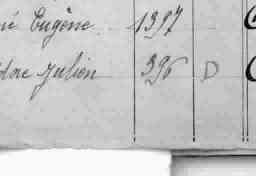 né Eugène 1397
dore Julien 396 D